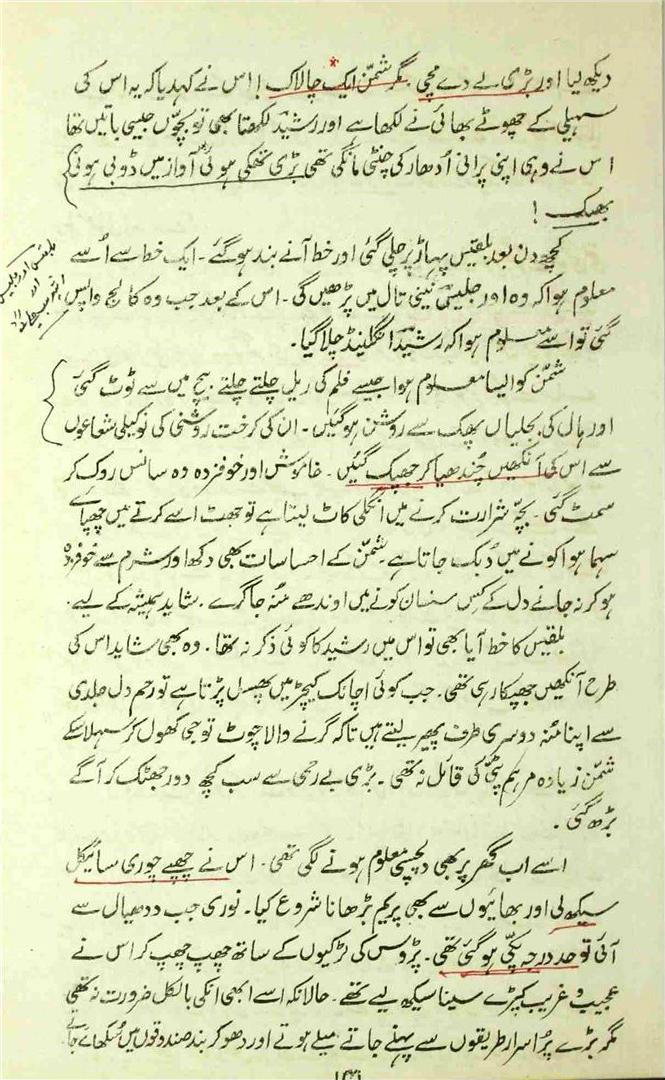 دیکھ لیا اور بڑی لے دے مچی مگر شمّن ایک چالاک! اس نے کہدیا کہ یہ اس کی
سہیلی کے چھوٹے بھائی نے لکھا ہے اور رشید لکھتا بھی تو بچوں جیسی باتیں تھا
اس نے وہی اپنی پرانی اُدھار کی چنٹی مانگی تھی بڑی تھکی ہوئی آواز میں ڈوبی ہوئی
بھیک!
کچھ دن بعد بلقیس پہاڑ پر چلی گئی اور خط آنے بند ہوگئے۔ ایک خط سے اُسے
معلوم ہوا کہ وہ اور جلیس نینی تال میں پڑھیں گی۔ اس کے بعد جب وہ کالج واپس
گئی تو اسے معلوم ہوا کہ رشید انگلینڈ چلا گیا۔
شمّن کو ایسا معلوم ہوا جیسے فلم کی ریل چلتے چلتے بیچ میں سے ٹوٹ گئی
اور ہال کی بجلیاں بھک سے روشن ہوگئیں۔ ان کی کرخت روشنی کی نوکیلی شعاعوں
سے اس کی آنکھیں چُندھیا کر جھپک گئیں۔ خاموش اور خوفزدہ وہ سانس روک کر
سمٹ گئی۔ بچہ شرارت کرنے میں انگلی کاٹ لیتا ہے تو جھٹ اسے کرتے میں چھپائے
سہما ہوا کونے میں دُبک جاتا ہے۔ شمّن کے احساسات بھی دکھ اور شرم سے خوفزدہ
ہوکر نہ جانے دل کے کس سنسان کونے میں اوندھے منہ جاگرے۔ شاید ہمیشہ کے لیے۔
بلقیس کا خط آیا بھی تو اس میں رشید کا کوئی ذکر نہ تھا۔ وہ بھی شاید اس کی
طرح آنکھیں جھپکا رہی تھی۔ جب کوئی اچانک کیچڑ میں پھسل پڑتا ہے تو رحم دل جلدی
سے اپنا منہ دوسری طرف پھیر لیتے ہیں تاکہ گرنے والا چوٹ تو جی کھول کر سہلا سکے
شمّن زیادہ مرہم پٹی کی قائل نہ تھی۔ بڑی بے رحمی سے سب کچھ دور جھٹک کر آگے
بڑھ گئی۔
اسے اب گھر پر بھی دلچسپی معلوم ہونے لگی تھی۔ اس نے چھپے چوری سائیکل
سیکھ لی اور بھائیوں سے بھی پریم بڑھانا شروع کیا۔ نوری جب ددھیال سے
آئی تو حد درجہ پکی ہوگئی تھی۔ پڑوس کی لڑکیوں کے ساتھ چھپ چھپ کر اس نے
عجیب و غریب کپڑے سینا سیکھ لیے تھے۔ حالانکہ اسے ابھی انکی بالکل ضرورت نہ تھی
مگر بڑے پُراسرار طریقوں سے پہنے جاتے میلے ہوتے اور دھو کر بند صندوقوں میں سُکھائے جاتے